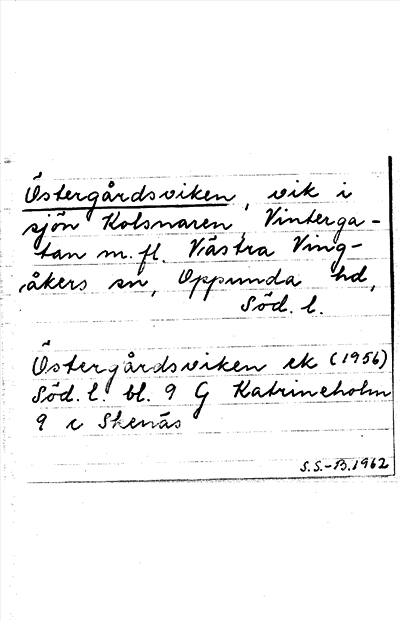 Östergårdsviken, vik i
sjön Kolsnaren, Vinterga-
tan m. fl. Västra Ving-
åkers sn, Oppunda hd,
Söd. l.
Östergårdsviken ek (1956)
Söd. l. bl. 9 G Katrineholm
9 c Skenäs
S.S.-B. 1962